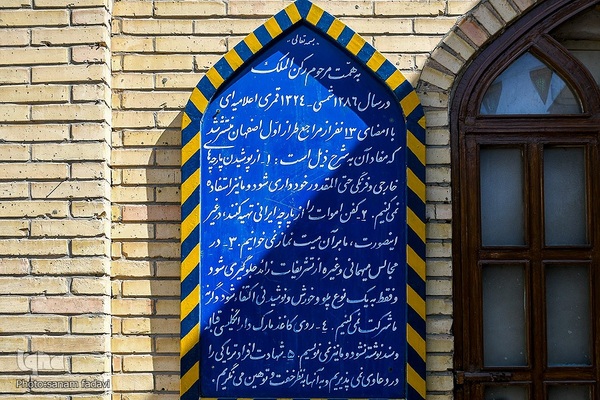 بسمه تعالی
به همّت مرحوم رکن الملک
در سال ۱۲۸۶ شمسی - ۱۳۲۴ قمری اعلامیه ای
با امضای ۱۳ نفر از مراجع طراز اول اصفهان منتشر شد
که مفاد آن به شرح ذیل است: ۱- از پوشیدن پارچه ها
خارجی و فرنگی حتی المقدور خودداری شود و ما نیز استفاده
نمی کنیم. ۲- کفن اموات را از پارچه ایرانی تهیه کنند؛ در غیر
اینصورت، ما بر آن میت نماز نمی خوانیم. ۳- در
مجالس میهمانی و غیره از تشریفات زائد جلوگیری شود
و فقط به یک نوع پلو و خورش و نوشیدنی اکتفا شود والّا
ما شرکت نمی کنیم. ۴- روی کاغذ مارک دار انگلیسی قباله
و سند نوشته نشود و ما نیز نمی نویسیم. ۵- شهادت افراد تریاکی را
در دعاوی نمی پذیریم و به آنها به نظر خفت و توهین می نگریم.
iqna
Photo:sanam fadavi